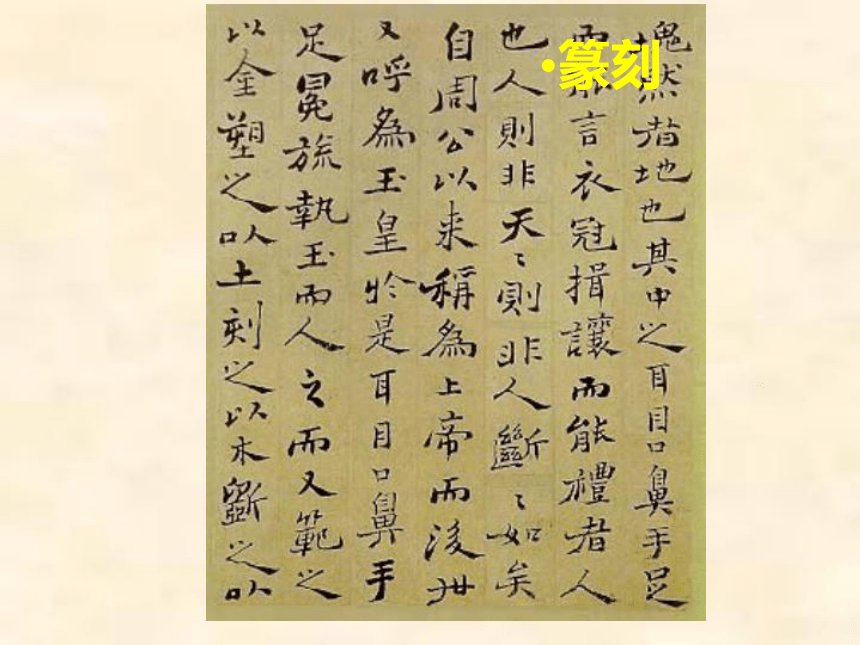 •篆刻
塊然者地也其中之耳目口鼻手足
而能言衣冠揖讓而能禮者人
也人則非天〻則非人斷〻如矣
自周公以来稱為上帝而後世
又呼為玉皇於是耳目口鼻手
足冕旒執玉而人之而又範之
以金塑之以土刻之以木斵之以